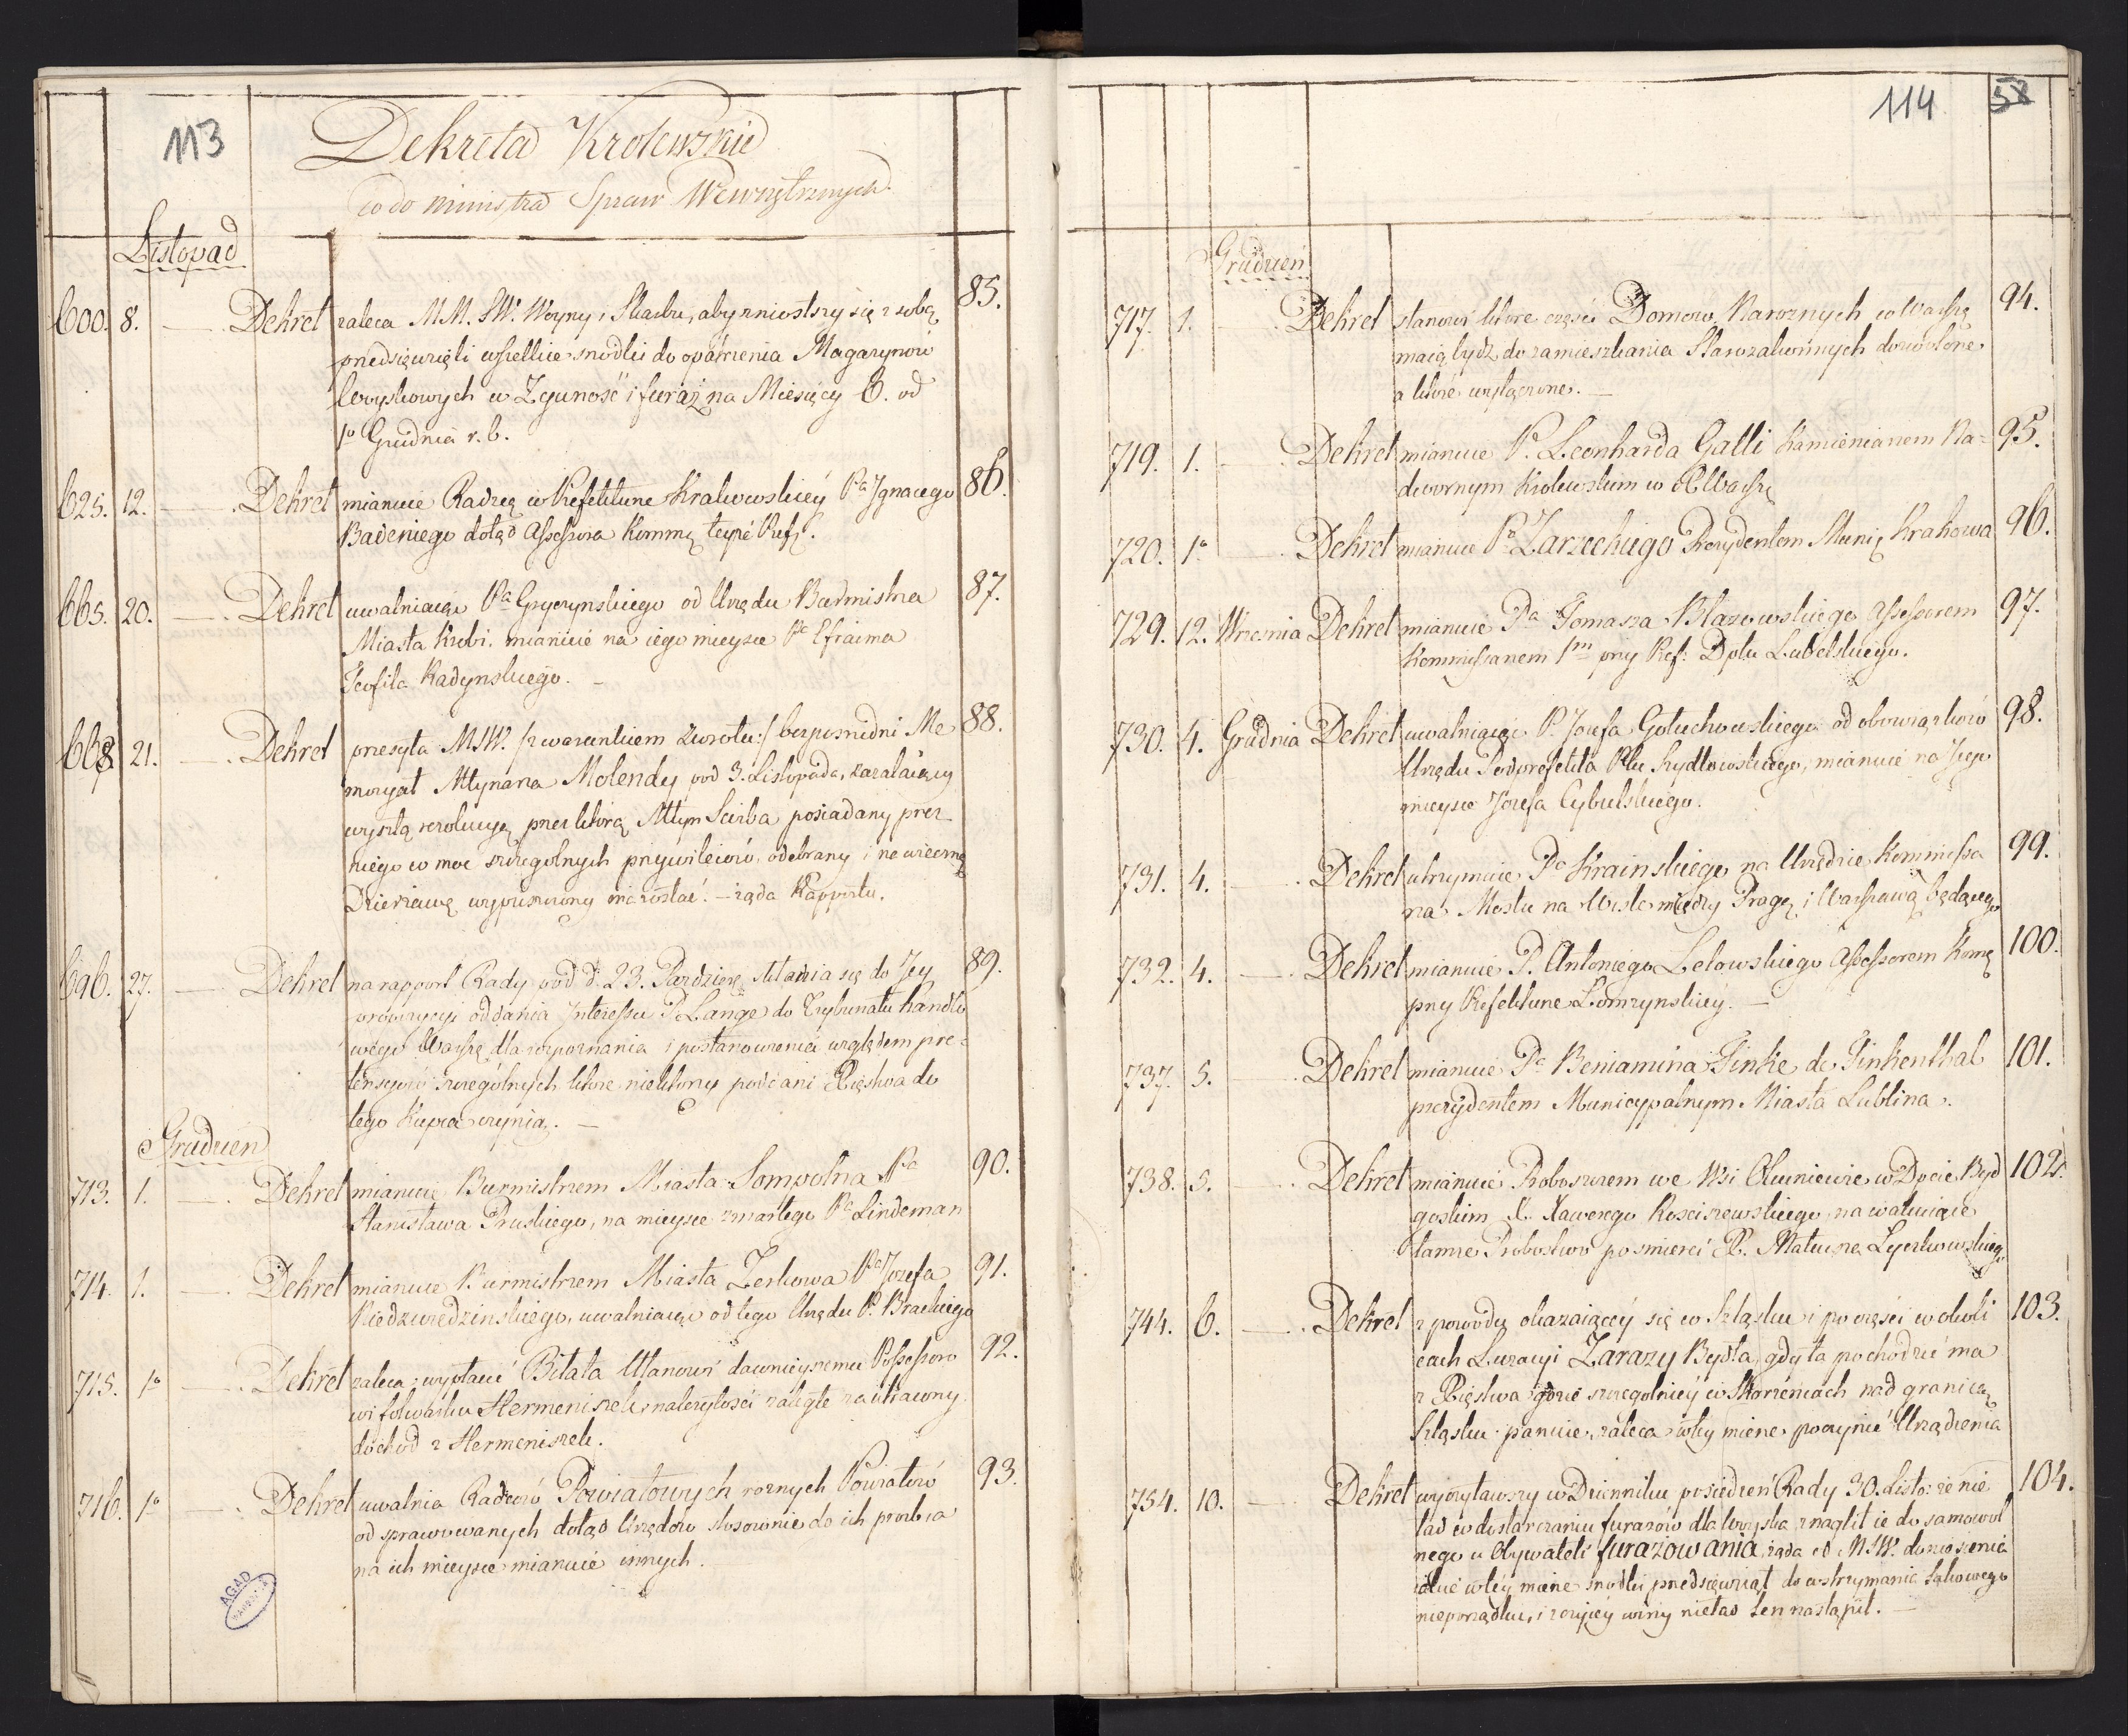 113
Dekreta Krolewskie
co do ministra Spraw Wewnętrznych
Listopad
600. 8. Dekret zaleca M.M. SW. Woyny i Skarbu, aby zniosłszy się z sobą 85.
przedsięwzięli wszelkie srzodki do opatrzenia Magazynow
woyskowych w Zywność i furaż na Miesięcy 6. od
1o Grudnia r. b.
625. 12. Dekret mianuie Radzcą w Prefekturze Krakowskiey Pa Ignacego 86.
Badeniego dotąd Assessora teyże Pref.
665. 20. Dekret uwalniaiąc Pa Gryczynskiego od Urzędu Burmistrza 87.
Miasta Krobi. mianuie na iego mieysce Pa Efraima
Teofila Radynskiego.
668. 21. Dekret przesyła MSW. /: z warunkiem zwrotu :/ bezposrzedni Me 88.
moryał Młynarza Molendy pod 3. Listopada, zażalaiący
wyszłą rezolucyą przez którą Młyn Sciba posiadany przez
niego w moc szczegolnych przywileiow, odebrany i na wieczną
Dzierżawę wypuszczony ma zostać. – żąda Rapportu.
696. 27. Dekret na rapport Rady pod d. 23. Paździer: skłania się do Jey
propozycyi oddania Interessu P. Lange do Trybunału handlo 89.
wego Warsz: dla rozpoznania i postanowienia względem pre=
tensyow szczególnych które niektórzy poddani Xięstwa do
tego Kupca czynią. –
Grudzien
713. 1. Dekret mianuie Burmistrzem Miasta Sompolna Pa 90.
Stanisława Pruskiego, na mieysce zmarłego Pa Lindeman
714. 1. Dekret mianuie Burmistrzem Miasta Zerkowa Pa Jozefa 91.
Niedzwiedzinskiego, uwalniaiąc od tego Urzędu P. Brackiego
715. 1o Dekret zaleca wypłacić Bilała Ułanowi dawnieyszemu Possessoro 92.
wi folwarku Hermeniszek należytości zaległe za utracony
dochod z Hermeniszek.
716. 1o Dekret uwalnia Radzcow Powiatowych roznych Powiatow 93.
od sprawowanych dotąd Urzędow stosownie do ich prozb i a
na ich mieysce mianuie innych.
AGAD
114 58
Grudzień
717. 1. Dekret stanowi które części Domow Narożnych w Warsz: 94.
maią bydź do zamieszkania Starozakonnych dozwolone
a które wyłączone. –
719. 1. Dekret mianuie P. Leonharda Galli Kamienianem Na= 95.
dwornym Krolewskim w Warsz:
720. 1o Dekret mianuie Pa Zarzeckiego Prezydentem Muni: Krakowa 96.
729. 12. Wrzesnia Dekret mianuie Pa Tomasza Błazowskiego Assessorem 97.
Kommissarzem przy Pref: Dptu Lubelskiego.
730. 4. Grudnia Dekret uwalniaiąc P. Jozefa Gołuchowskiego od obowiązkow 98.
Urzędu Podprefekta Ptu Szydłowskiego, mianuie na Jego
mieysce Jozefa Cybulskiego.
731. 4. Dekret utrzymuie Pa Krainskiego na Urzędzie Kommissa 99.
rza Mostu na Wisle między Pragą i Warszawą będącego
732. 4. Dekret mianuie P. Antoniego Letowskiego Assessorem Kom: 100.
przy Prefekturze Łomzynskiey. –
737. 5. Dekret mianuie Pa Beniamina Finke de Finkenthal 101.
prezydentem Municypalnym Miasta Lublina.
738. 5. Dekret mianuie Proboszczem we Wsi w Dpcie Byd 102.
goskim X. Xawerego Kosciszewskiego, na wakuiące
tamże Probostwo po smierci X. Mateusza
744. 6. Dekret z powodu okazaiącey się w Szląsku i po części w okoli 103.
cach Luzacyi Zarazy Bydła, gdy ta pochodzić ma
z Xięstwa gdzie szczegolniey w nad granicą
Szląsku panuie, zaleca w tey mierze poczynić Urządzenia
754. 10. Dekret wyczytawszy w Dzienniku posiedzeń Rady 30. Listo: że nie 104.
ład w dostarczaniu furażow dla Woyska znaglił ie do samowol
nego u Obywateli furażowania, żąda od MSW. doniesienia
iakie w tey mierze srzodki przedsięwziął do wstrzymania takowego
nieporządku, i z czyiey winy nieład ten nastąpił. –